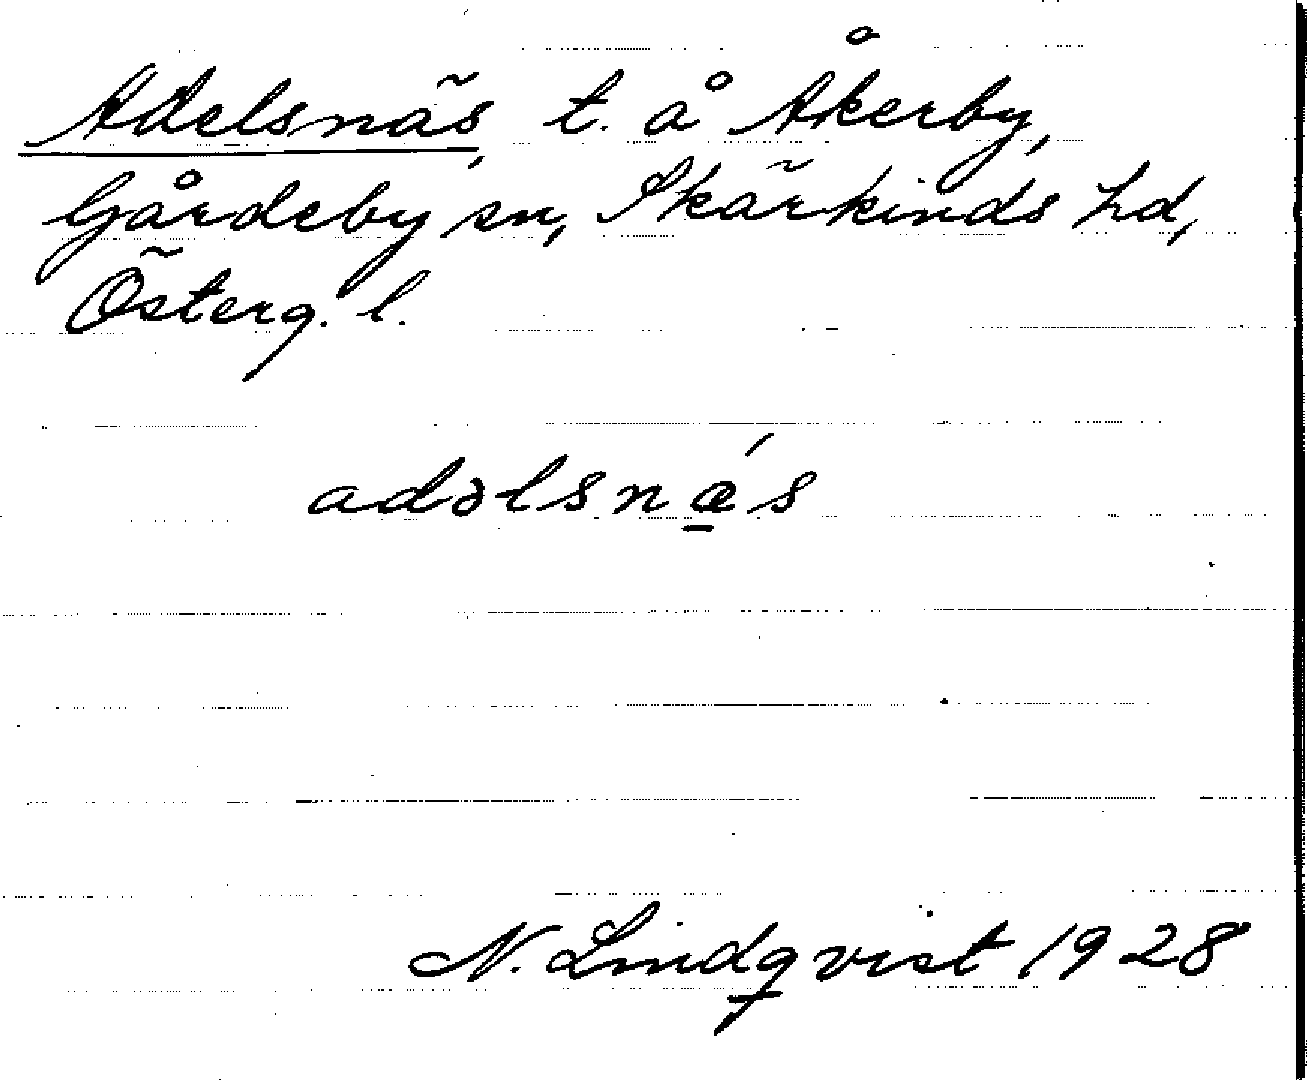 Adelsnäs, t. å Åkerby,
Gårdeby sn, Skärkinds hd,
Österg. l.
adəlsnǽ̱s
N. Lindqvist 1928